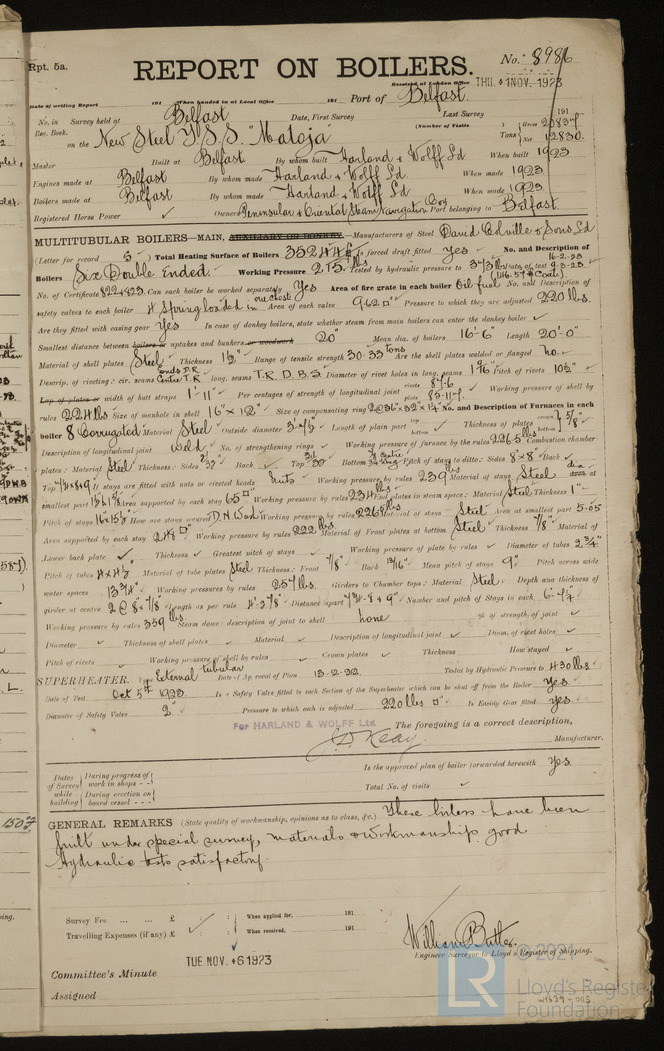 Rpt. 5a.
REPORT ON BOILERS.
No. 8986
Received at London Office THU. 1 NOV. 1923
Date of writing Report 191 When handed in at Local Office 191 Port of Belfast
No. in Survey held at Belfast Date, First Survey Last Survey 191
Reg. Book. (Number of Visits ) Gross 20837
on the New Steel T.S.S. "Maloja" Tons Net 12830
Master Built at Belfast By whom built Harland & Wolff Ld When built 1923
Engines made at Belfast By whom made Harland & Wolff Ld When made 1923
Boilers made at Belfast By whom made Harland & Wolff Ld When made 1923
Registered Horse Power Owners Peninsular & Oriental Steam Navigation Coy Port belonging to Belfast
MULTITUBULAR BOILERS—MAIN, AUXILIARY OR DONKEY.—Manufacturers of Steel David Colville & Sons Ld
(Letter for record S) Total Heating Surface of Boilers 35244 Is forced draft fitted Yes No. and Description of
Boilers Six Double Ended Working Pressure 215 lbs Tested by hydraulic pressure to 373 lbs Date of test 9-3-23 16-2-23
No. of Certificate 822 & 823 Can each boiler be worked separately Yes Area of fire grate in each boiler Oil fuel No. and Description of
safety valves to each boiler 4 Spring loaded in one chest Area of each valve 9.62 □" Pressure to which they are adjusted 220 lbs.
Are they fitted with easing gear Yes In case of donkey boilers, state whether steam from main boilers can enter the donkey boiler
Smallest distance between boilers or uptakes and bunkers or woodwork 20" Mean dia. of boilers 16'-6" Length 20'-0"
Material of shell plates Steel Thickness 1½" Range of tensile strength 30-33 tons Are the shell plates welded or flanged No.
Descrip. of riveting: cir. seams Ends D.R. Centre T.R. long. seams T.R. D.B.S. Diameter of rivet holes in long. seams 1 9/16 Pitch of rivets 10½"
Lap of plates or width of butt straps 1'-11" Per centages of strength of longitudinal joint rivets 87.6 plate 85.11 Working pressure of shell by
rules 224 lbs Size of manhole in shell 16" x 12" Size of compensating ring No. and Description of Furnaces in each
boiler 8 Corrugated Material Steel Outside diameter Length of plain part top bottom Thickness of plates crown bottom 5/8"
Description of longitudinal joint Weld No. of strengthening rings Working pressure of furnace by the rules 226.5 lbs Combustion chamber
plates: Material Steel Thickness: Sides Back Top Bottom Pitch of stays to ditto: Sides 8" x 8" Back
Top If stays are fitted with nuts or riveted heads Nuts Working pressure by rules 239 lbs Material of stays Steel dia at
smallest part Area supported by each stay 65 □" Working pressure by rules 234 lbs End plates in steam space: Material Steel Thickness 1"
Pitch of stays How are stays secured D.N. Wash Working pressure by rules 226.5 lbs Material of stays Steel Area at smallest part 5.05
Area supported by each stay 248 □" Working pressure by rules 222 lbs Material of Front plates at bottom Steel Thickness 7/8" Material of
Lower back plate Thickness Greatest pitch of stays Working pressure of plate by rules Diameter of tubes 2¾"
Pitch of tubes Material of tube plates Steel Thickness: Front 7/8" Back 13/16" Mean pitch of stays 9" Pitch across wide
water spaces 13¾" Working pressures by rules 257 lbs. Girders to Chamber tops: Material Steel Depth and thickness of
girder at centre 2 @ 8 x 7/8" Length as per rule Distance apart Number and pitch of Stays in each
Working pressure by rules 359 lbs Steam dome: description of joint to shell None % of strength of joint
Diameter Thickness of shell plates Material Description of longitudinal joint Diam. of rivet holes
Pitch of rivets Working pressure of shell by rules Crown plates Thickness How stayed
SUPERHEATER. Type External tubular Date of Approval of Plan 13-2-22 Tested by Hydraulic Pressure to 430 lbs.
Date of Test Oct 5th 1923 Is a Safety Valve fitted to each Section of the Superheater which can be shut off from the Boiler Yes
Diameter of Safety Valve 2" Pressure to which each is adjusted 220 lbs □" Is Easing Gear fitted Yes
For HARLAND & WOLFF Ltd. The foregoing is a correct description,
Manufacturer.
Dates of Survey while building During progress of work in shops - - Is the approved plan of boiler forwarded herewith Yes.
During erection on board vessel - - - Total No. of visits
GENERAL REMARKS (State quality of workmanship, opinions as to class, &c.) These boilers have been
built under special survey, materials & workmanship good
Hydraulic tests satisfactory.
Survey Fee ... ... £ : : When applied for, 191
Travelling Expenses (if any) £ : : When received, 191
William Butler.
Engineer Surveyor to Lloyd's Register of Shipping.
TUE NOV. 6 1923
Committee's Minute
Assigned
LR
© 2021
Lloyd's Register
Foundation